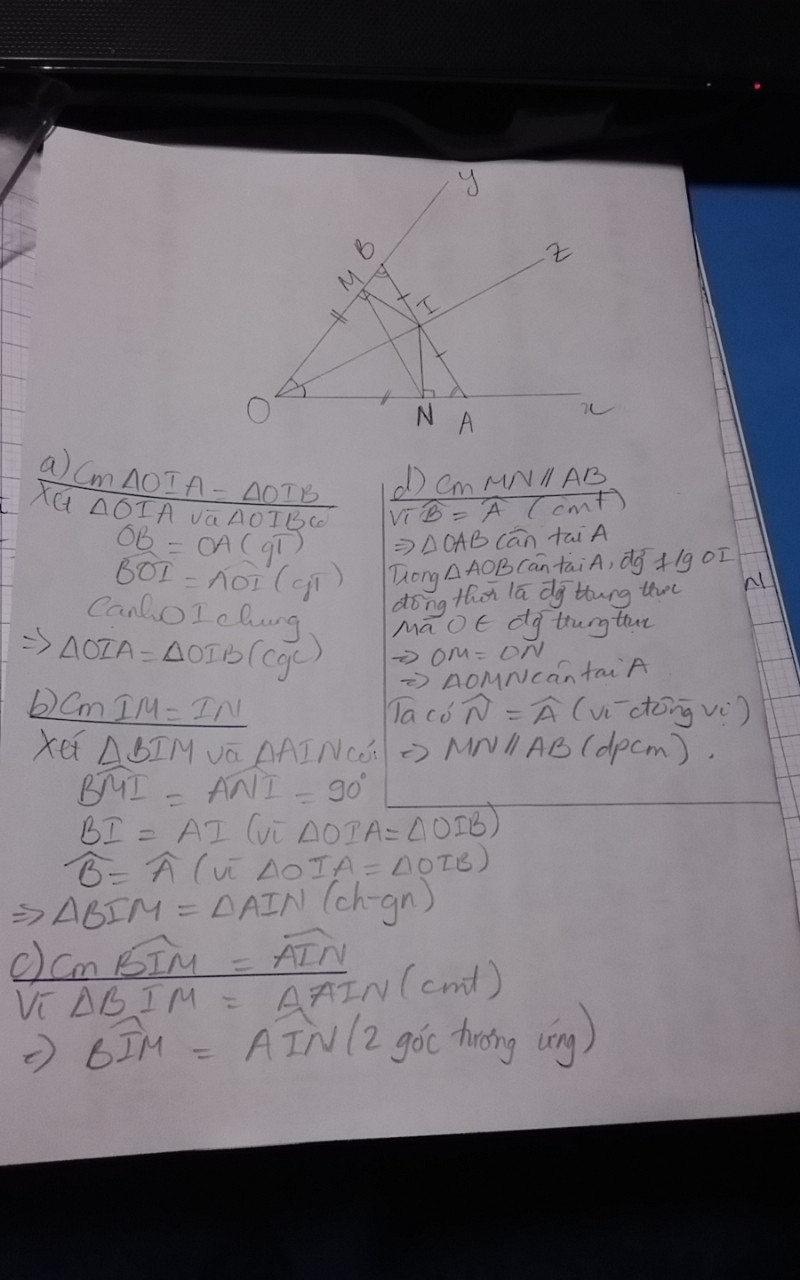 y
B
z
M
I
O
N
A
x
a) Cm ΔOIA = ΔOIB
Xét ΔOIA và ΔOIB có
OB = OA (gT)
BOI = AOI (gT)
Cạnh OI chung
=> ΔOIA = ΔOIB (cgc)
b) Cm IM = IN
Xét ΔBIM và ΔAIN có:
BMI = ANI = 90°
BI = AI (vì ΔOIA = ΔOIB)
B = A (vì ΔOIA = ΔOIB)
=> ΔBIM = ΔAIN (ch-gn)
c) Cm BIM = AIN
Vì ΔBIM = ΔAIN (cmt)
=> BIM = AIN (2 góc tương ứng)
d) Cm MN // AB
Vì B = A (cmt)
=> ΔOAB cân tại A
Trong ΔAOB cân tại A, đg OI
đồng thời là đg trung trực
Mà O ∈ đg trung trực
=> OM = ON
=> ΔOMN cân tại A
Ta có N = A (vì đồng vị)
=> MN // AB (dpcm).